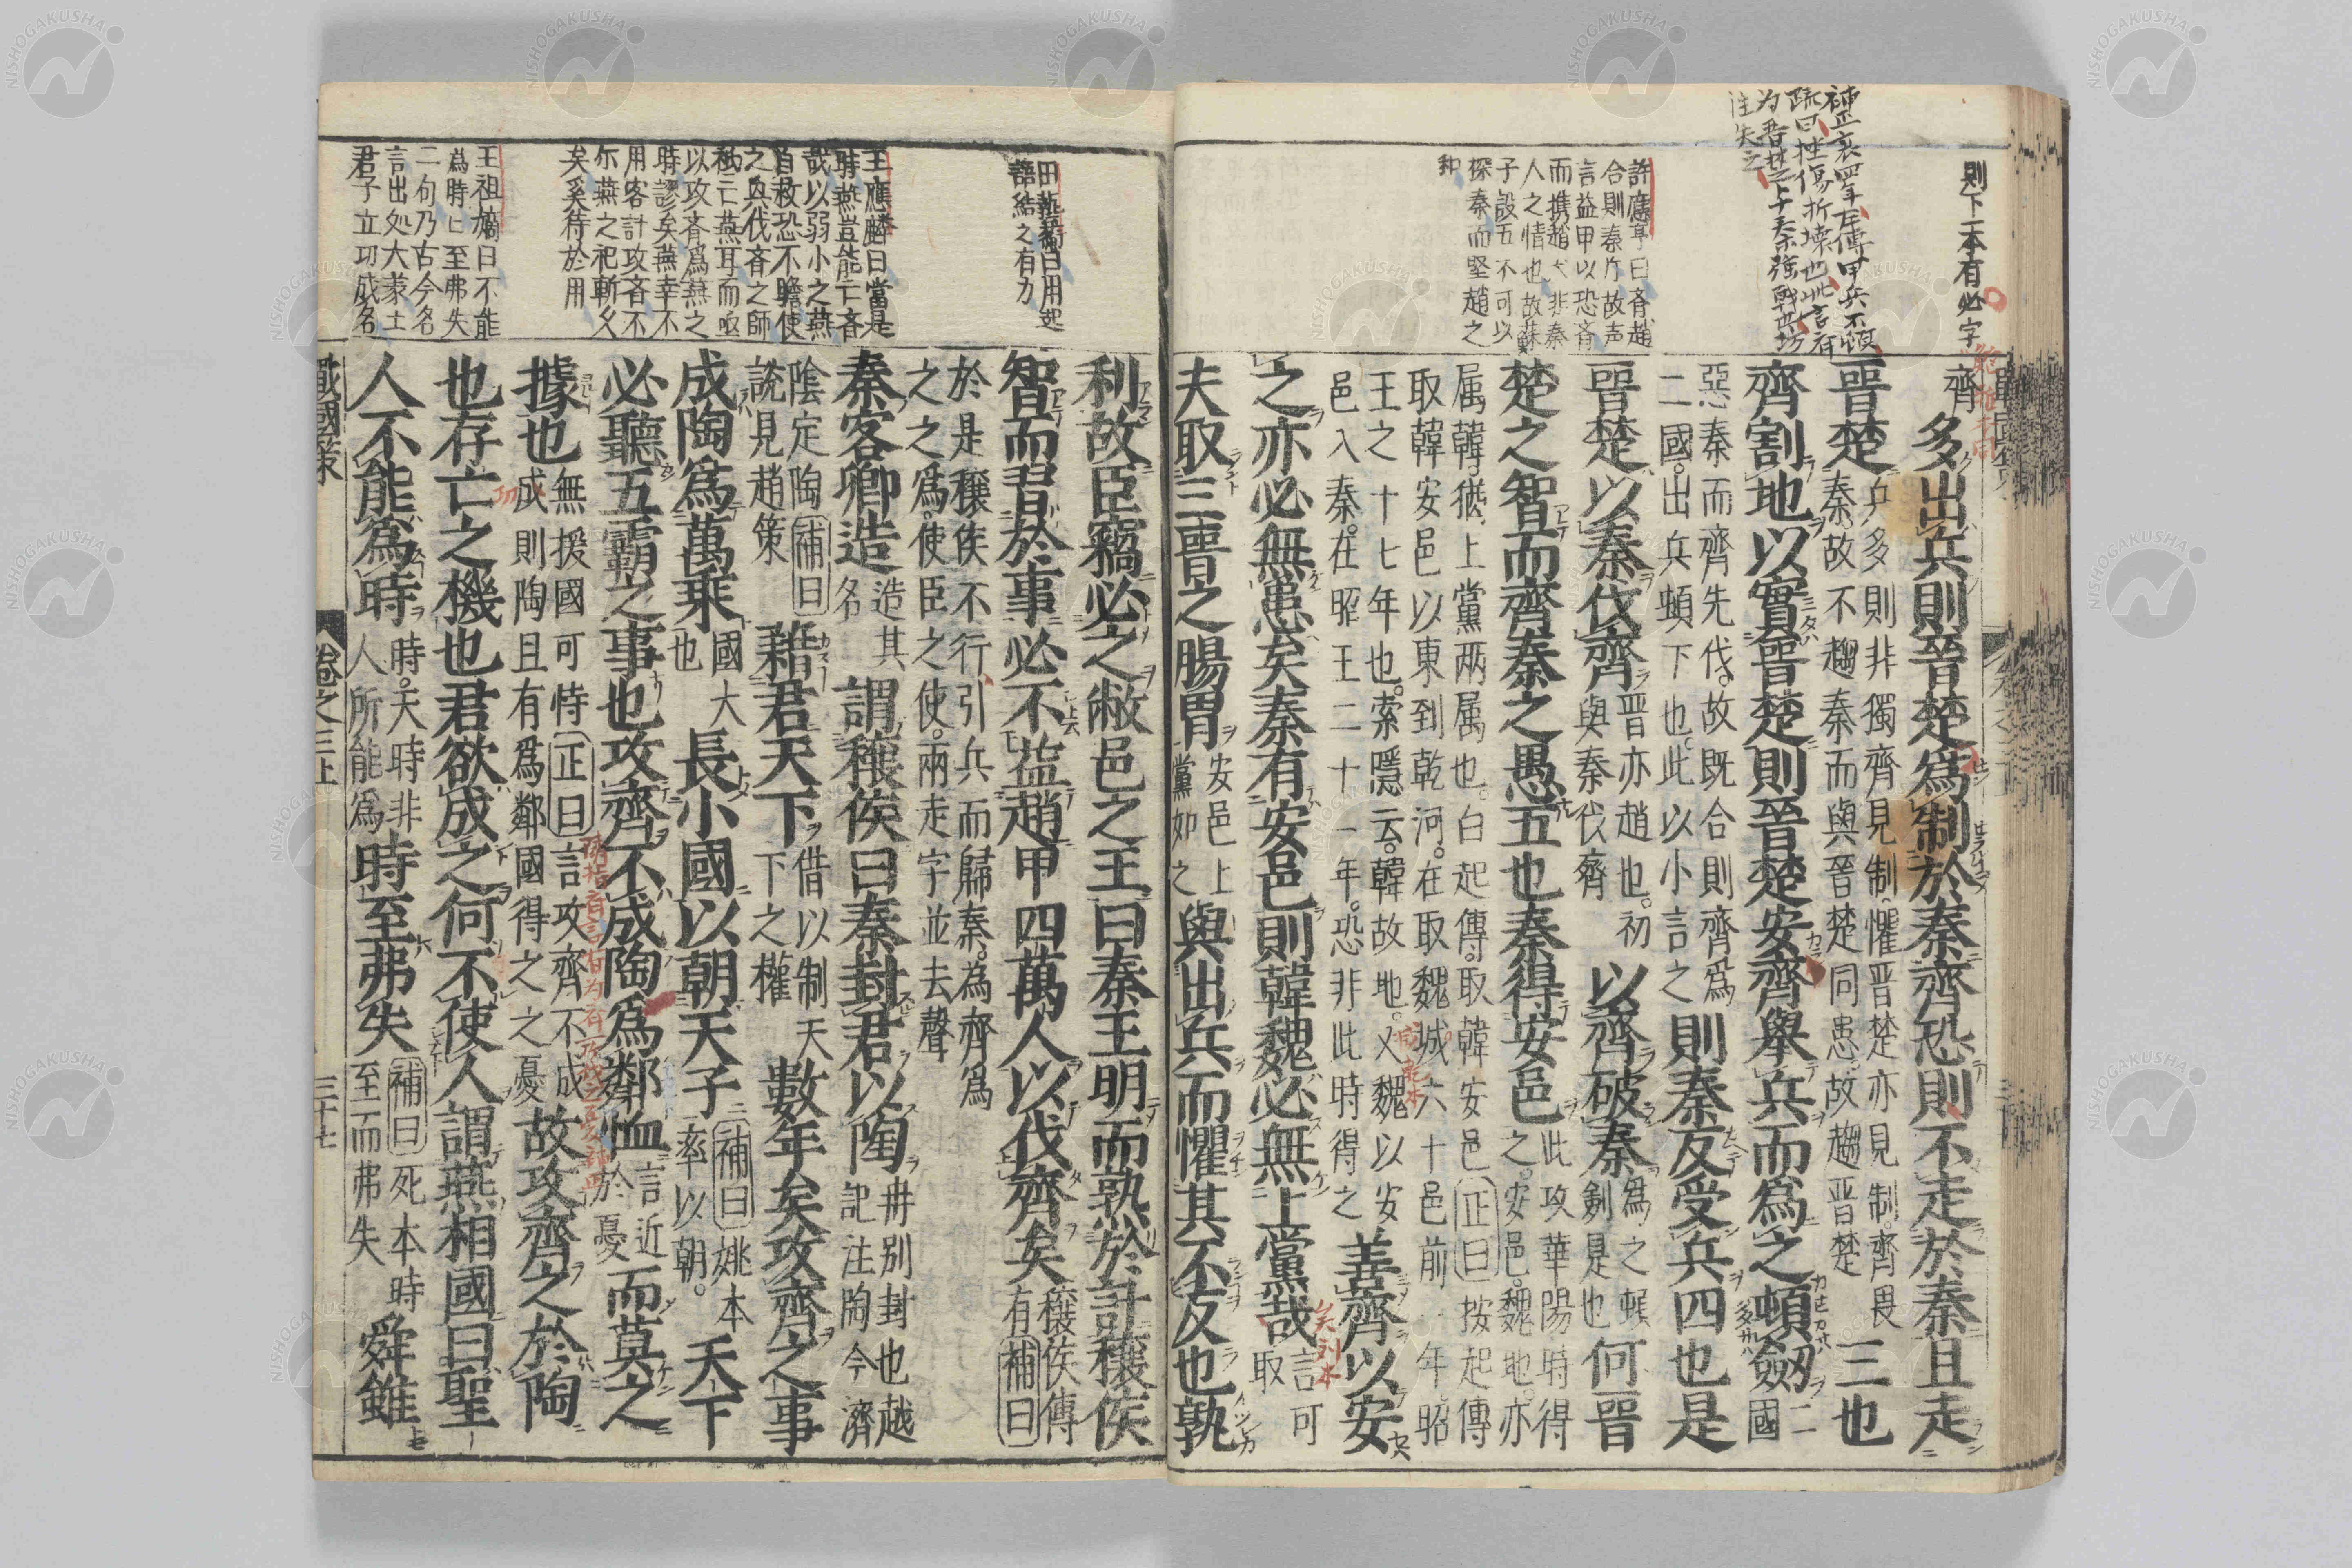 則下一本有必字
許應亨曰斉趙
合則秦斤故声
言益甲以恐斉
而携趙大非秦
人之情也故蘇
子設五不可以
探秦而堅趙之
齊
多出兵則晉楚爲制於秦齊恐則不走於秦且走
晉楚
兵多則非獨齊見制懼晉楚亦見制齊畏
秦故不趨秦而與晉楚同患故趨晉楚
三也
齊割地以實晉楚則晉楚安齊舉兵而爲之頓劔
二
國
惡秦而齊先伐故既合則齊爲
二國出兵頓下也此以小言之
則秦反受兵四也是
晉楚以秦伐齊
晉亦趙也初
與秦伐齊
以齊破秦
爲之帿
劍是也
何晉
楚之智而齊秦之愚五也秦得安邑
此攻華陽時得
之安邑魏地亦
属韓猶上黨兩属也白起傳取韓安邑
正曰
按起傳
取韓安邑以東到乾河在取魏城六十邑前一年昭
王之十七年也索隱云韓故地乂魏以安
邑入秦在昭王二十一年恐非此時得之
善齊以安
之亦必無患矣秦有安邑則韓魏必無上黨哉
言可
取
夫取三晉之腸胃
安邑上
黨如之
與出兵而懼其不反也孰
田藝蘅曰用起
語結之有力
王應麟曰當是
時燕豈能亡斉
哉以弱小之燕
自救恐不贍使
之與伐斉之師
秪亡燕耳而亟
以攻斉爲燕之
時謬矣燕幸不
用客計攻斉不
尓燕之祀斬久
矣奚待於用
王祖嫡曰不能
爲時已至弗失
二句乃古今名
言出处大蒙士
君子立功成名
利故臣竊必之敝邑之王曰秦王明而熟於計穰侯
智而習於事必不益趙甲四萬人以伐齊矣
穰侯傳
有
補曰
於是穰侯不行引兵而歸秦爲齊爲
之之爲使臣之使兩走字並去聲
秦客卿造
造其
名
謂穰侯曰秦封君以陶
冊別封也越
記注陶今濟
陰定陶
補曰
説見趙策
藉君天下
借以制天
下之權
數年矣攻齊之事
成陶爲萬乘
國大
也
長小國以朝天子
補曰
姚本
率以朝
天下
必聽五霸之事也攻齊不成陶爲鄰恤
言近
於憂
而莫之
據也
無援國可恃
正曰
言攻齊不成
成則陶且有爲鄰國得之之憂
故攻齊之於陶
也存亡之機也君欲成之何不使人謂燕相國曰聖
人不能爲時
時天時非
人所能爲
時至弗失
補曰
死本時
至而弗失
舜雖
戰國策
卷之三上
三十七